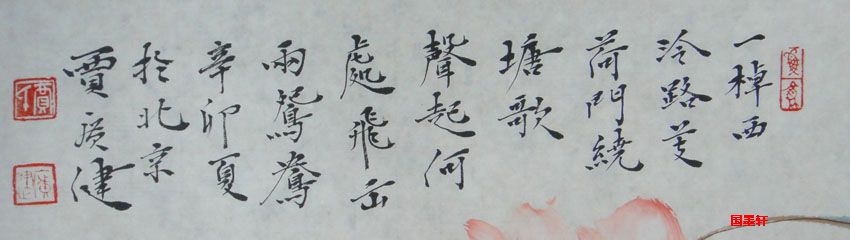 一棹西
泠路芰
荷門繞
塘歌
聲起何
處飛出
兩鴛鴦
辛卯夏
於北京
賈廣健
国墨轩